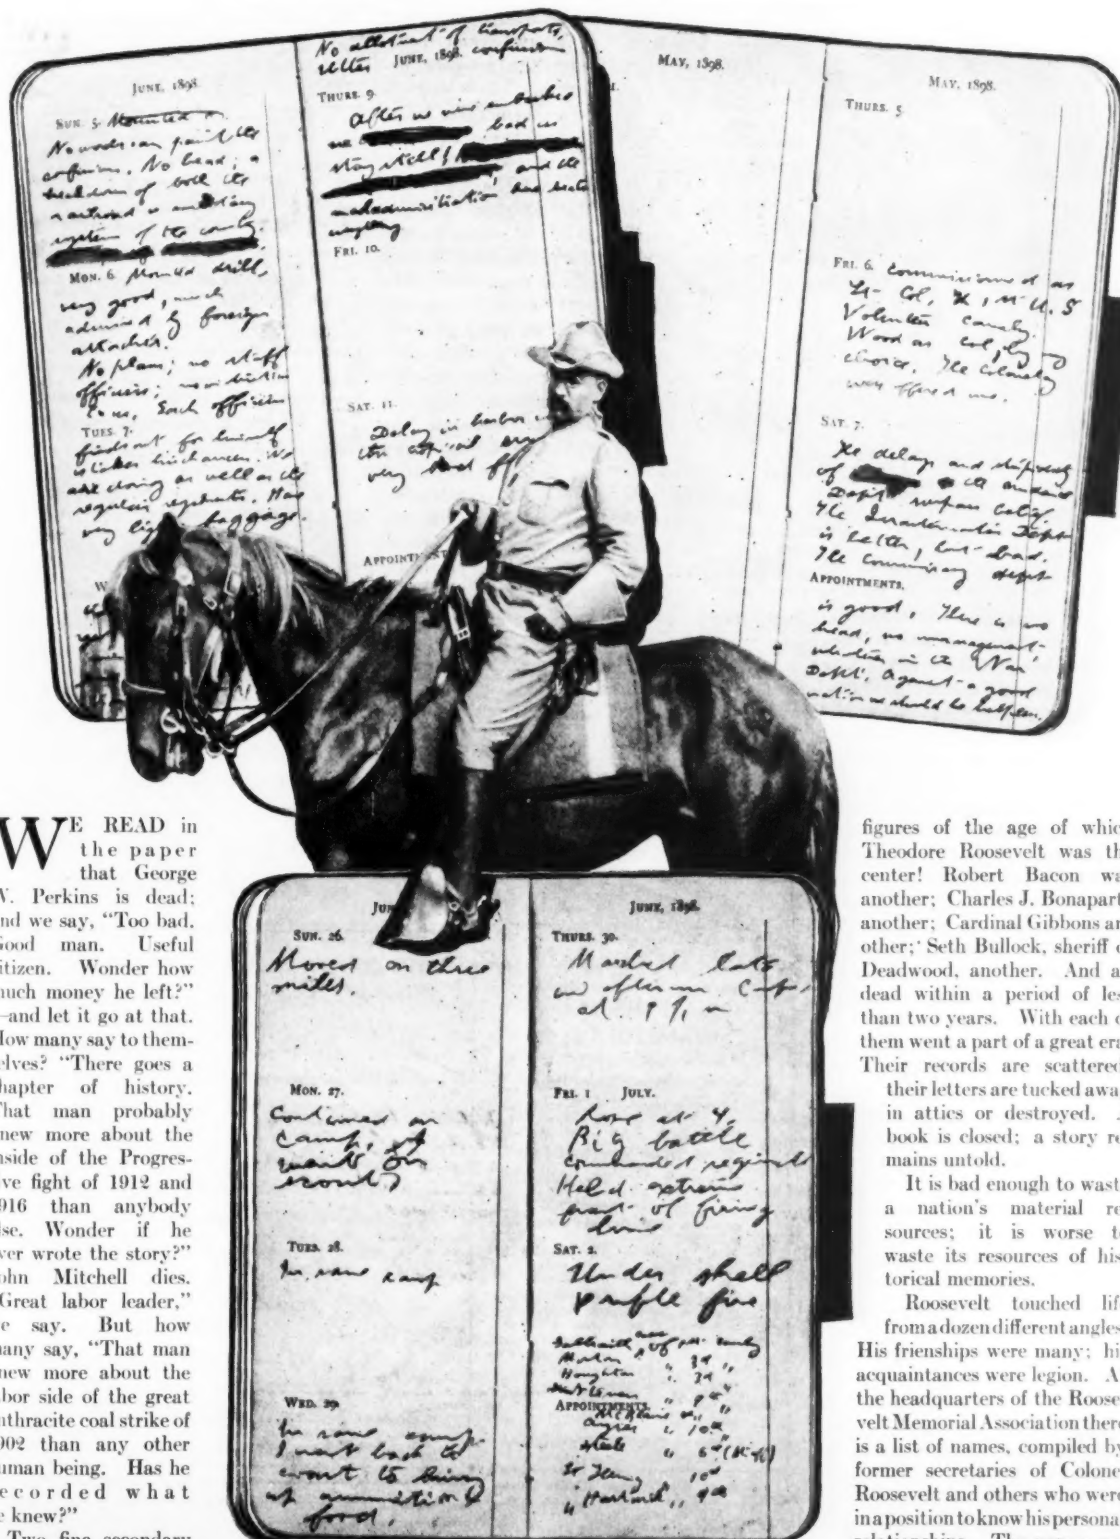 JUNE, 1898.
SUN. 5. Mounted
No words can paint the
confusion. No head; a
breakdown of both the
railroad & military
system of the country.
MON. 6. Mounted drill,
very good, much
admired by foreign
attachés.
No plans; no staff
officers; no instructions
to us. Each officer
TUES. 7.
finds out for himself
& takes his chances. We
are doing as well as the
regular regiments. Have
very light baggage.
No allotment of transports,
utter confusion
JUNE, 1898.
THURS. 9.
After we were embarked
we bad us
stay still!
and the
maladministration has beaten
FRI. 10.
SAT. 11.
Delay in harbor
very bad
APPOINTMENT
MAY, 1898.
MAY, 1898.
THURS. 5
FRI. 6. Commissioned as
Lt-Col, U.S
Volunteer Cavalry.
Wood as Col, by my
choice. The Colonelcy
was offered me.
SAT. 7.
The delays and stupidity
of the ordnance
Dept surpass belief.
The Quartermaster Dept
is better, but bad.
The Commissary dept
APPOINTMENTS.
is good. There is no
head, no management
whatever in the War
Dept. Against a good
nation we should be helpless.
SUN. 26.
Moved on three
miles.
MON. 27.
Continued in
camp,
wait on
scout
TUES. 28.
In same camp
WED. 29
In same camp.
I went back to
coast to bring
up ammunition &
food.
JUNE, 1898.
THURS. 30.
Marched late
in afternoon
at
FRI. 1 JULY.
Rose at 4.
Big battle
commanded regiment
Held extreme
part of firing
line
SAT. 2.
Under shell
& rifle fire
APPOINTMENTS.
WE READ in
the paper
that George
W. Perkins is dead;
and we say, "Too bad.
Good man. Useful
citizen. Wonder how
much money he left?"
—and let it go at that.
How many say to them-
selves? "There goes a
chapter of history.
That man probably
knew more about the
inside of the Progres-
sive fight of 1912 and
1916 than anybody
else. Wonder if he
ever wrote the story?"
John Mitchell dies.
"Great labor leader,"
we say. But how
many say, "That man
knew more about the
labor side of the great
anthracite coal strike of
1902 than any other
human being. Has he
recorded what
he knew?"
Two fine secondary
figures of the age of which
Theodore Roosevelt was the
center! Robert Bacon was
another; Charles J. Bonaparte
another; Cardinal Gibbons an-
other; Seth Bullock, sheriff of
Deadwood, another. And all
dead within a period of less
than two years. With each of
them went a part of a great era.
Their records are scattered;
their letters are tucked away
in attics or destroyed. A
book is closed; a story re-
mains untold.
It is bad enough to waste
a nation's material re-
sources; it is worse to
waste its resources of his-
torical memories.
Roosevelt touched life
from a dozen different angles.
His frienships were many; his
acquaintances were legion. At
the headquarters of the Roose-
velt Memorial Association there
is a list of names, compiled by
former secretaries of Colonel
Roosevelt and others who were
in a position to know his personal